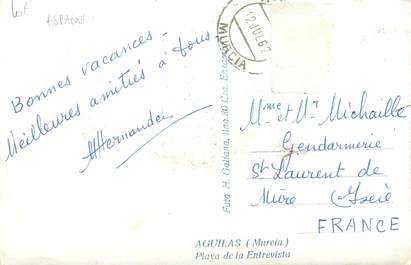 Lot ESPAGNE
Bonnes vacances -
Meilleures amitiés à tous
MHernandez
MURCIA
12 JUL 62
Foto H. Galiana, dna.
Mme et Mr Michaille
Gendarmerie
St Laurent de
Mure Isère
FRANCE
AGUILAS (Murcia)
Playa de la Entrevista